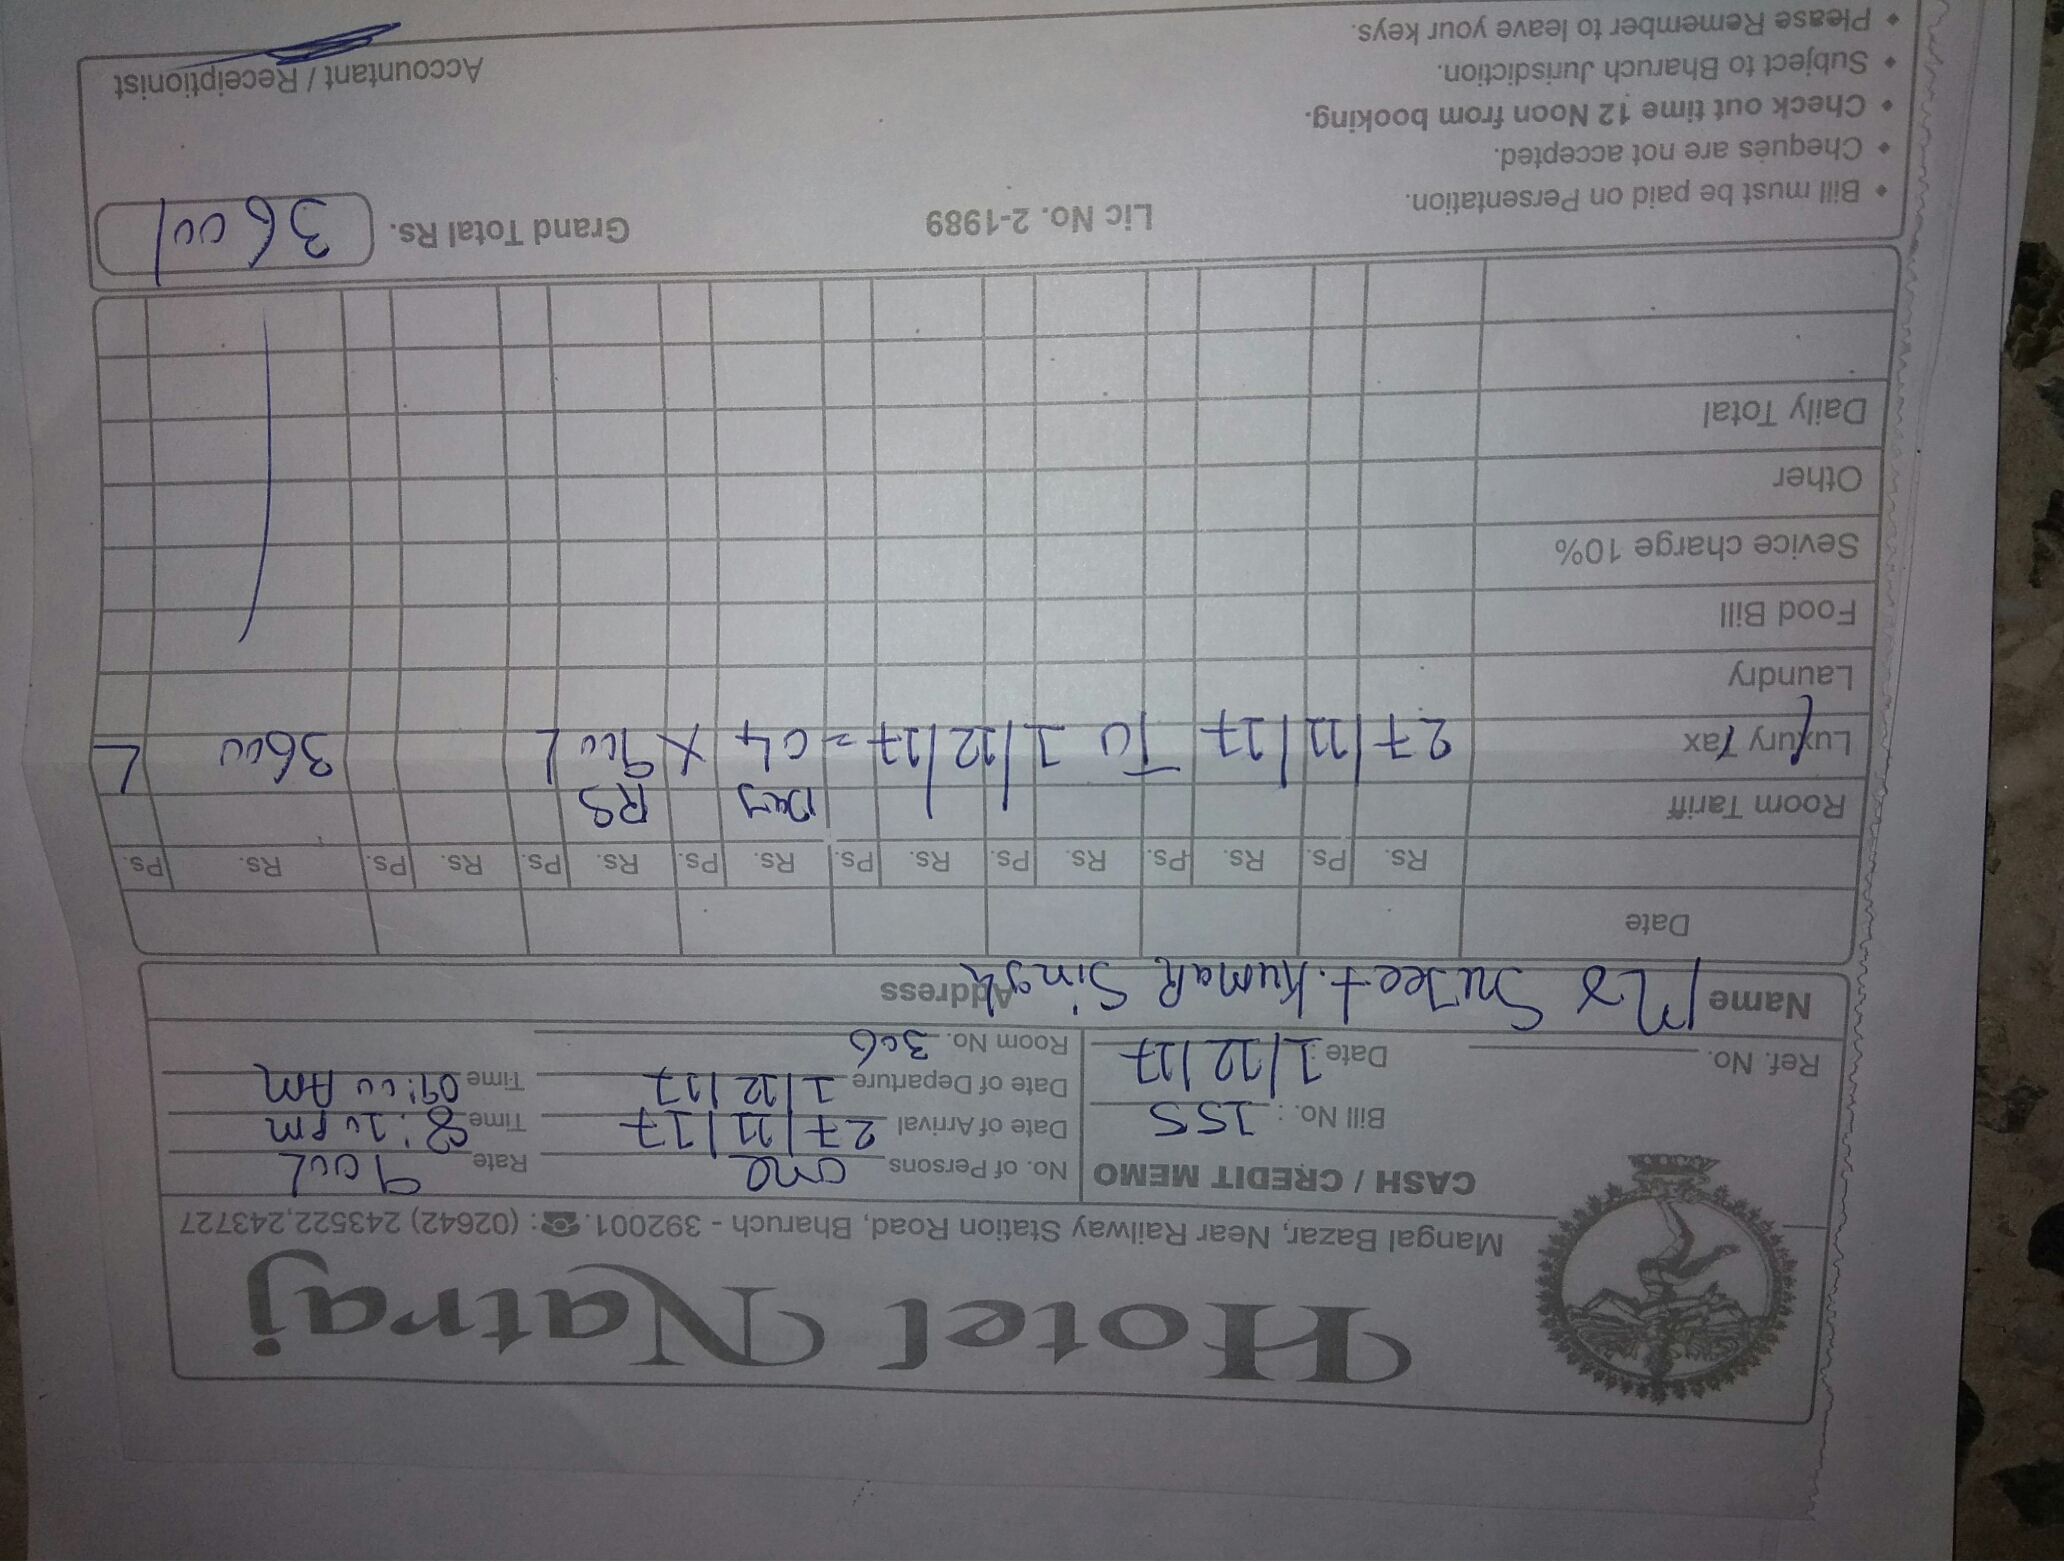 Hotel Natraj
Mangal Bazar, Near Railway Station Road, Bharuch - 392001. ☎: (02642) 243522,243727
CASH / CREDIT MEMO
No. of Persons one Rate 900/-
Bill No. : 155
Date of Arrival 27/11/17 Time 8:10 PM
Date of Departure 1/12/17 Time 09:00 AM
Ref. No. Date : 1/12/17
Room No. 306
Name Mr Sujeet. Kumar Singh Address
Date
Rs. Ps. Rs. Ps. Rs. Ps. Rs. Ps. Rs. Ps. Rs. Ps. Rs. Ps. Rs. Ps.
Room Tariff Day RS
Luxury Tax 27/11/17 To 1/12/17 = 04 x 900/- 3600/-
Laundry
Food Bill
Sevice charge 10%
Other
Daily Total
• Bill must be paid on Persentation. Lic No. 2-1989 Grand Total Rs. 3600/
• Cheques are not accepted.
• Check out time 12 Noon from booking.
• Subject to Bharuch Jurisdiction.
• Please Remember to leave your keys.
Accountant / Receiptionist